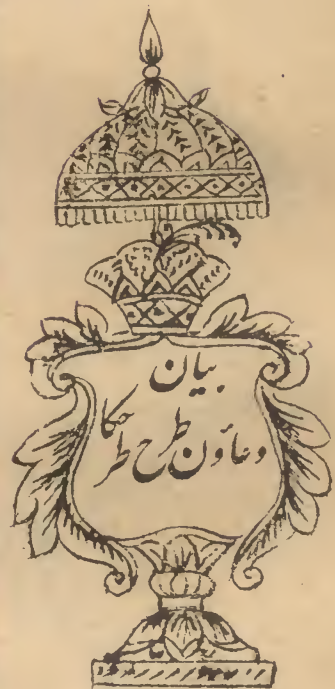 بیان
دعاؤن طرح طرحکا